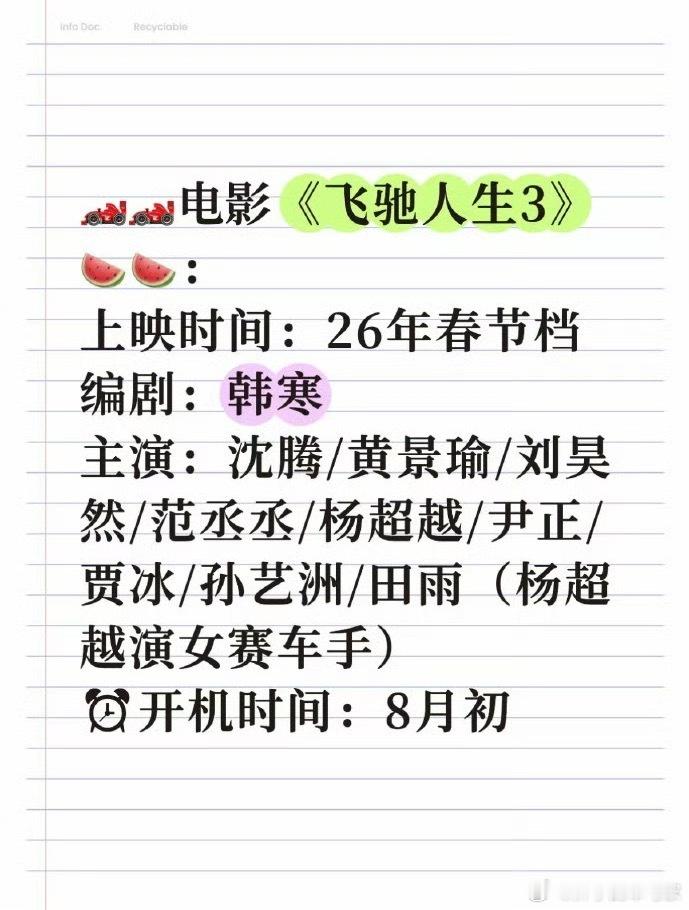 Info Doc
Recyclable
🏎️🏎️电影《飞驰人生3》
🍉🍉：
上映时间：26年春节档
编剧：韩寒
主演：沈腾/黄景瑜/刘昊
然/范丞丞/杨超越/尹正/
贾冰/孙艺洲/田雨（杨超
越演女赛车手）
⏰开机时间：8月初